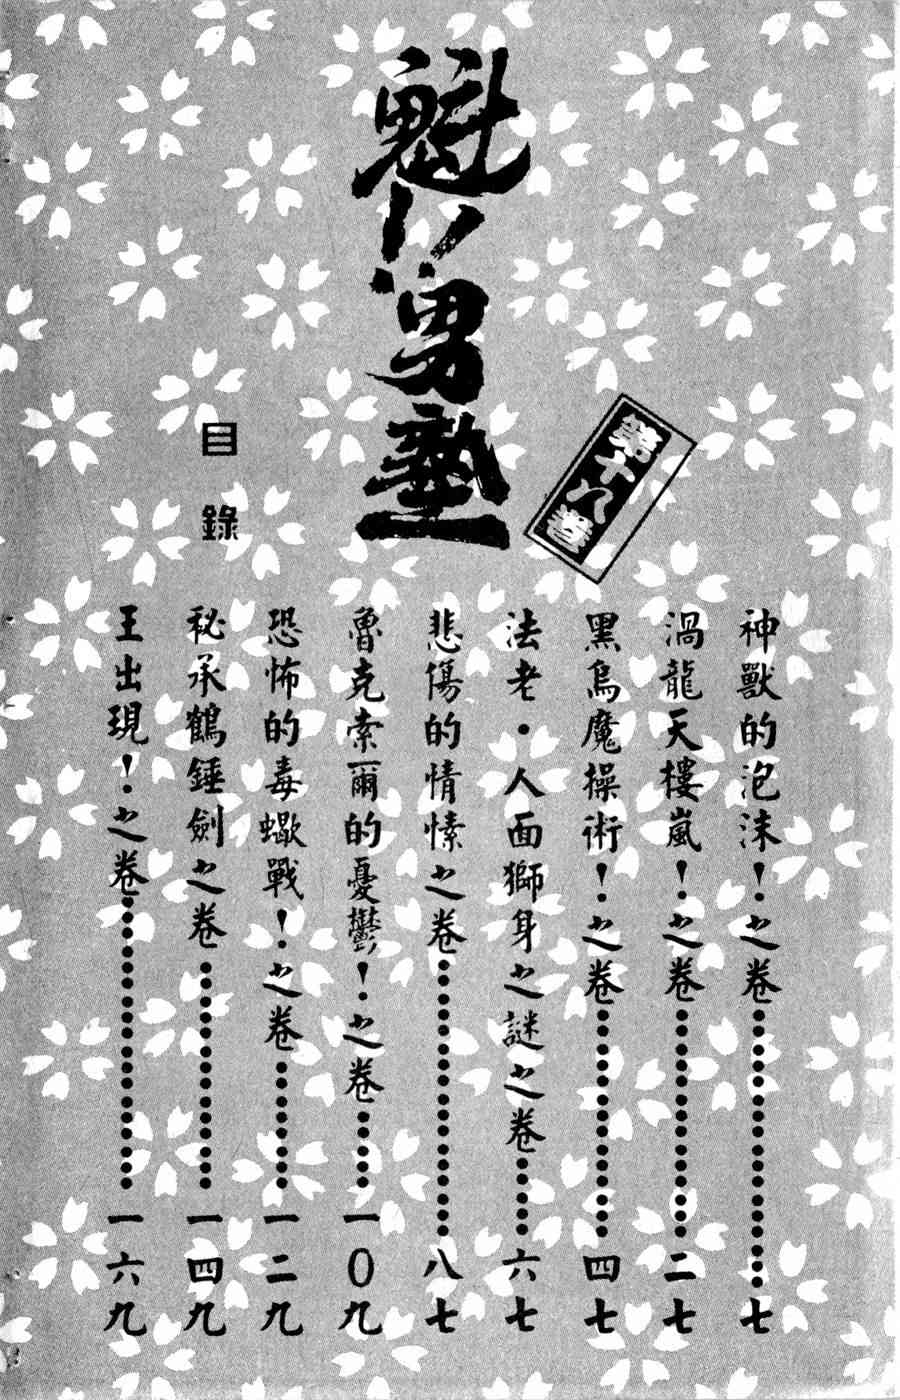 魁!!男塾
第十八卷
目錄
神獸的泡沫!之卷………七
渦龍天樓嵐!之卷………二七
黑烏魔操術!之卷………四七
法老・人面獅身之謎之卷………六七
悲傷的情愫之卷………八七
魯克索爾的憂鬱!之卷………一〇九
恐怖的毒蠍戰!之卷………一二九
秘承鶴錘劍之卷………一四九
王出現!之卷………一六九